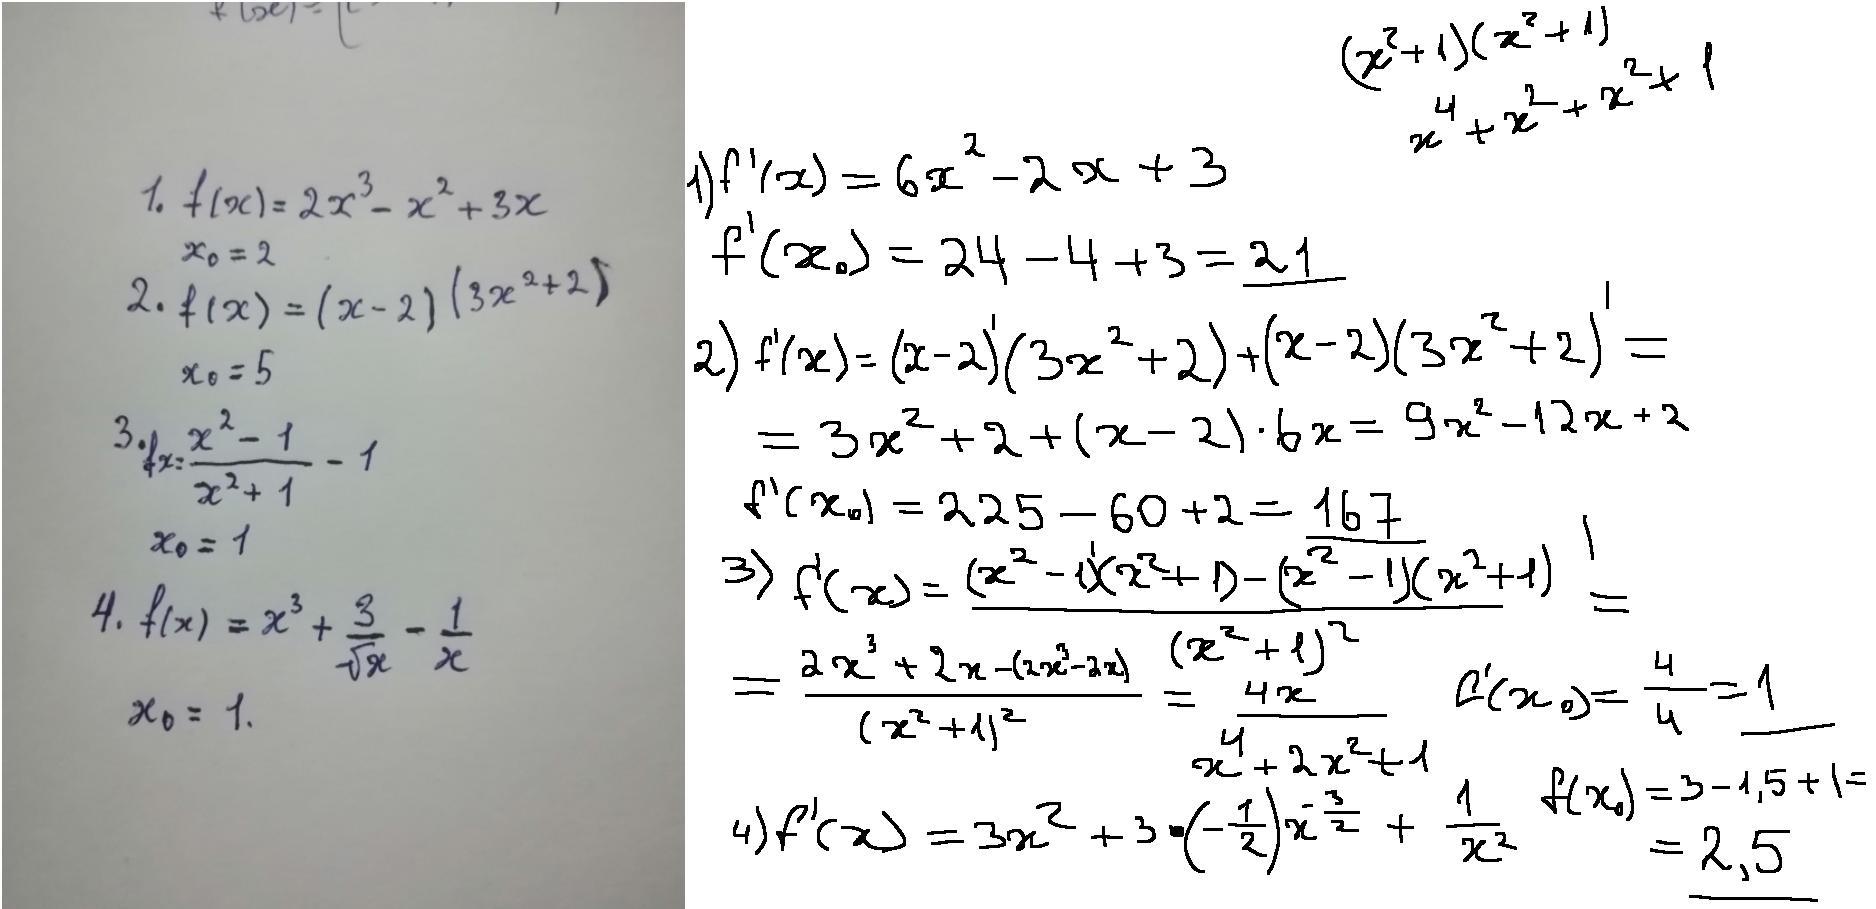 1. f(x) = 2x³ - x² + 3x
x₀ = 2
2. f(x) = (x-2)(3x²+2)
x₀ = 5
3. fx = (x² - 1)/(x² + 1) - 1
x₀ = 1
4. f(x) = x³ + 3/√x - 1/x
x₀ = 1.
(x²+1)(x²+1)
x⁴ + x² + x² + 1
1) f'(x) = 6x² - 2x + 3
f'(x₀) = 24 - 4 + 3 = 21
2) f'(x) = (x-2)'(3x²+2) + (x-2)(3x²+2)' =
= 3x² + 2 + (x-2)·6x = 9x² - 12x + 2
f'(x₀) = 225 - 60 + 2 = 167
3) f'(x) = ((x²-1)'(x²+1) - (x²-1)(x²+1)')/(x²+1)² =
= (2x³ + 2x - (2x³-2x))/(x²+1)² = 4x/(x⁴+2x²+1) f'(x₀) = 4/4 = 1
4) f'(x) = 3x² + 3·(-1/2)x^(-3/2) + 1/x² f(x₀) = 3 - 1,5 + 1 =
= 2,5